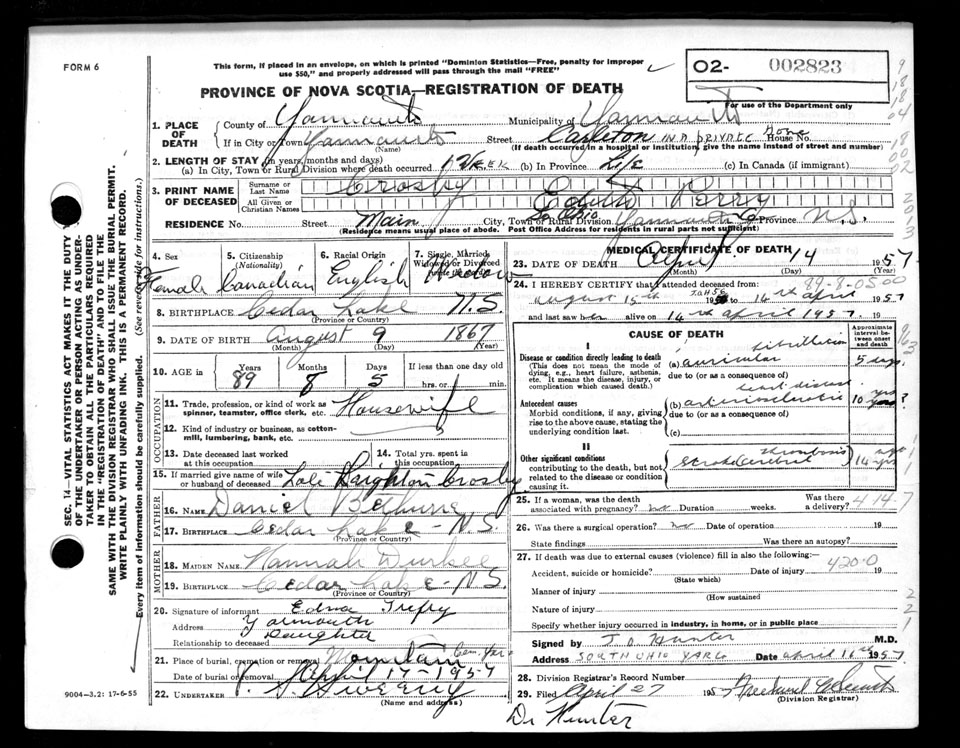 FORM 6
This form, if placed in an envelope, on which is printed "Dominion Statistics—Free, penalty for improper
use $50," and properly addressed will pass through the mail "FREE"
O2- 002823
For use of the Department only
PROVINCE OF NOVA SCOTIA—REGISTRATION OF DEATH
1. PLACE OF DEATH
County of Yarmouth Municipality of Yarmouth
If in City or Town Yarmouth (Name) Street Carleton IN A PRIVATE Home House No.
(If death occurred in a hospital or institution, give the name instead of street and number)
2. LENGTH OF STAY (in years, months and days)
(a) In City, Town or Rural Division where death occurred 1 WEEK (b) In Province Life (c) In Canada (if immigrant)
3. PRINT NAME OF DECEASED
Surname or Last Name Crosby
All Given or Christian Names Edith Perry
RESIDENCE No. Street Main City, Town or Rural Division So Ohio Yarmouth Co Province N.S.
(Residence means usual place of abode. Post Office Address for residents in rural parts not sufficient)
4. Sex Female
5. Citizenship (Nationality) Canadian
6. Racial Origin English
7. Single, Married, Widowed or Divorced Widow
8. BIRTHPLACE Cedar Lake N.S.
(Province or Country)
9. DATE OF BIRTH August 9 1867
(Month) (Day) (Year)
10. AGE in Years 89 Months 8 Days 5 If less than one day old hrs. or min.
OCCUPATION
11. Trade, profession, or kind of work as spinner, teamster, office clerk, etc. Housewife
12. Kind of industry or business, as cotton-mill, lumbering, bank, etc.
13. Date deceased last worked at this occupation
14. Total yrs. spent in this occupation
15. If married give name of wife or husband of deceased Leighton Crosby
FATHER
16. NAME Daniel Bethune
17. BIRTHPLACE Cedar Lake - N.S.
(Province or Country)
MOTHER
18. MAIDEN NAME Hannah Durkee
19. BIRTHPLACE Cedar Lake - N.S.
(Province or Country)
20. Signature of informant Edna Trefry
Address Yarmouth
Relationship to deceased Daughter
21. Place of burial, cremation or removal Mountain Cem.
Date of burial or removal April 17 - 1957
22. UNDERTAKER Sweeny
(Name and address)
9004-3.2: 17-6-55
MEDICAL CERTIFICATE OF DEATH
23. DATE OF DEATH April 14 1957
(Month) (Day) (Year)
24. I HEREBY CERTIFY that I attended deceased from: 89-8-05 00
august 15th 1956 to 14th april 1957
and last saw her alive on 14th april 1957.
CAUSE OF DEATH
Approximate interval between onset and death
I
Disease or condition directly leading to death
(This does not mean the mode of dying, e.g., heart failure, asthenia, etc. It means the disease, injury, or complication which caused death.)
(a) auricular fibrillation 5
due to (or as a consequence of)
Antecedent causes
Morbid conditions, if any, giving rise to the above cause, stating the underlying condition last.
(b) arteriosclerotic heart disease 10 yrs?
due to (or as a consequence of)
(c)
II
Other significant conditions
contributing to the death, but not related to the disease or condition causing it.
Stroke Cerebral thrombosis 14 yrs ago
25. If a woman, was the death associated with pregnancy? no Duration weeks. Was there a delivery? 4 14 7
26. Was there a surgical operation? no Date of operation 19
State findings Was there an autopsy?
27. If death was due to external causes (violence) fill in also the following:—
420-0
Accident, suicide or homicide? Date of injury 19
(State which)
Manner of injury
(How sustained)
Nature of injury
Specify whether injury occurred in industry, in home, or in public place
Signed by J.D. Hunter M.D.
Address SOUTH OHIO YAR Co Date april 16th 1957.
28. Division Registrar's Record Number
29. Filed April 27 1957
(Division Registrar)
Dr Hunter
SEC. 14—VITAL STATISTICS ACT MAKES IT THE DUTY
OF THE UNDERTAKER OR PERSON ACTING AS UNDER-
TAKER TO OBTAIN ALL THE PARTICULARS REQUIRED
IN THE "REGISTRATION OF DEATH" AND TO FILE THE
SAME WITH THE DIVISION REGISTRAR WHO SHALL ISSUE THE BURIAL PERMIT.
WRITE PLAINLY WITH UNFADING INK. THIS IS A PERMANENT RECORD.
Every item of information should be carefully supplied. (See reverse side for instructions).